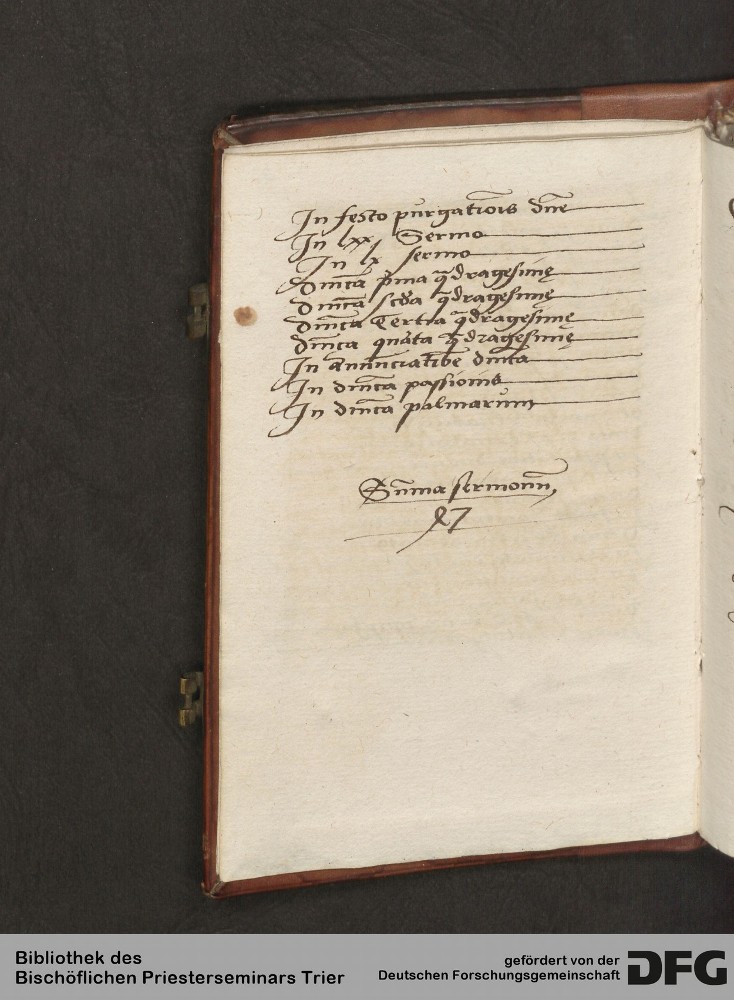 In festo purgatiōis dn̄e
In lxx Sermo
In lx sermo
Dn̄ica p̄ma q̄dragesimę
Dn̄ica scd̄a q̄dragesimę
Dn̄ica Tertia q̄dragesimę
Dn̄ica quarta q̄dragesimę
In annunciatiōe
In dn̄ica passionis
In dn̄ica palmarum
Sūma sermonū
Bibliothek des
Bischöflichen Priesterseminars Trier
gefördert von der
Deutschen Forschungsgemeinschaft
DFG